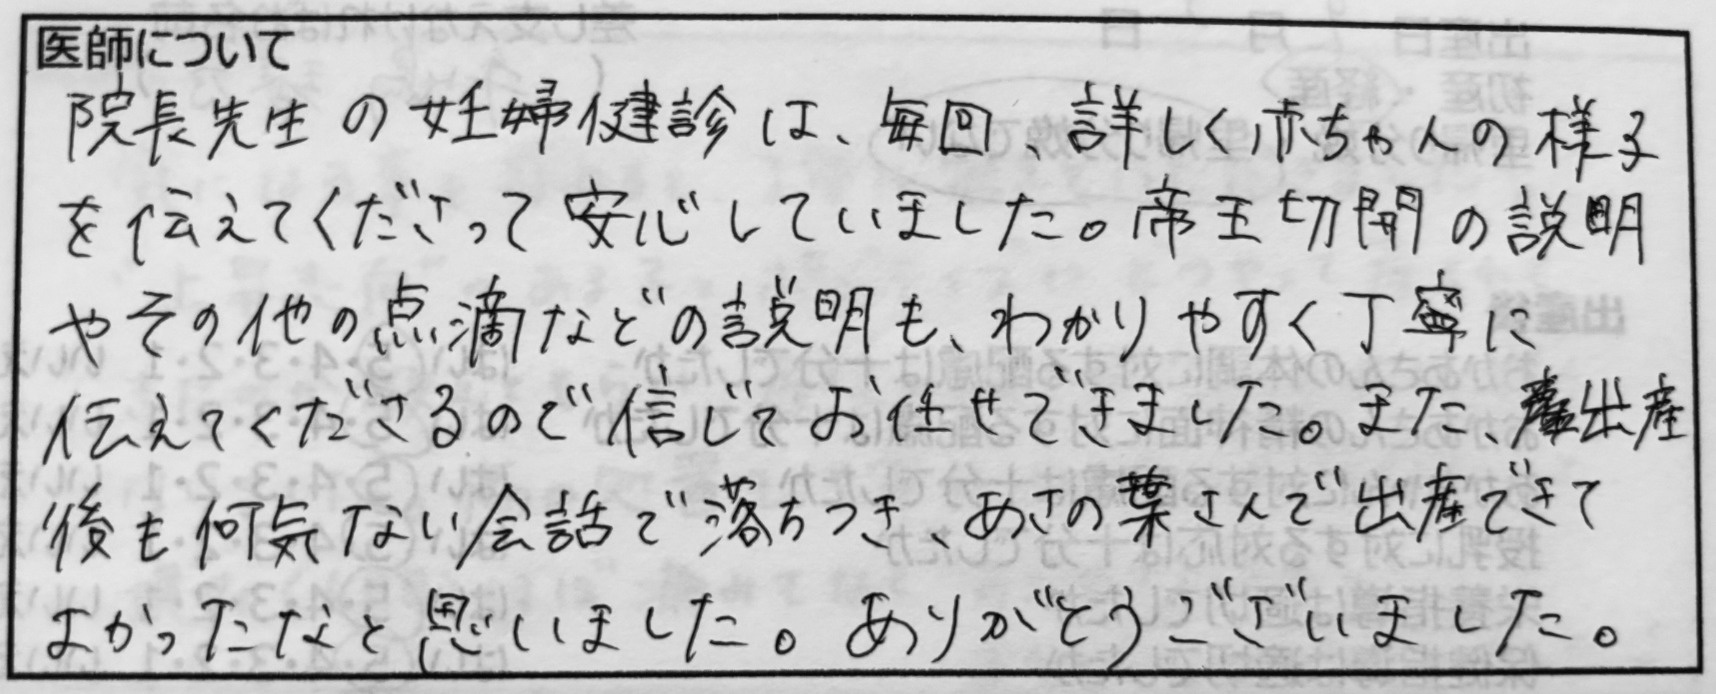 医師について
院長先生の妊婦健診は、毎回、詳しく赤ちゃんの様子
を伝えてくださって安心していました。帝王切開の説明
やその他の点滴などの説明も、わかりやすく丁寧に
伝えてくださるので信じてお任せできました。また、出産
後も何気ない会話で落ちつき、あさの葉さんで出産できて
よかったなと思いました。ありがとうございました。